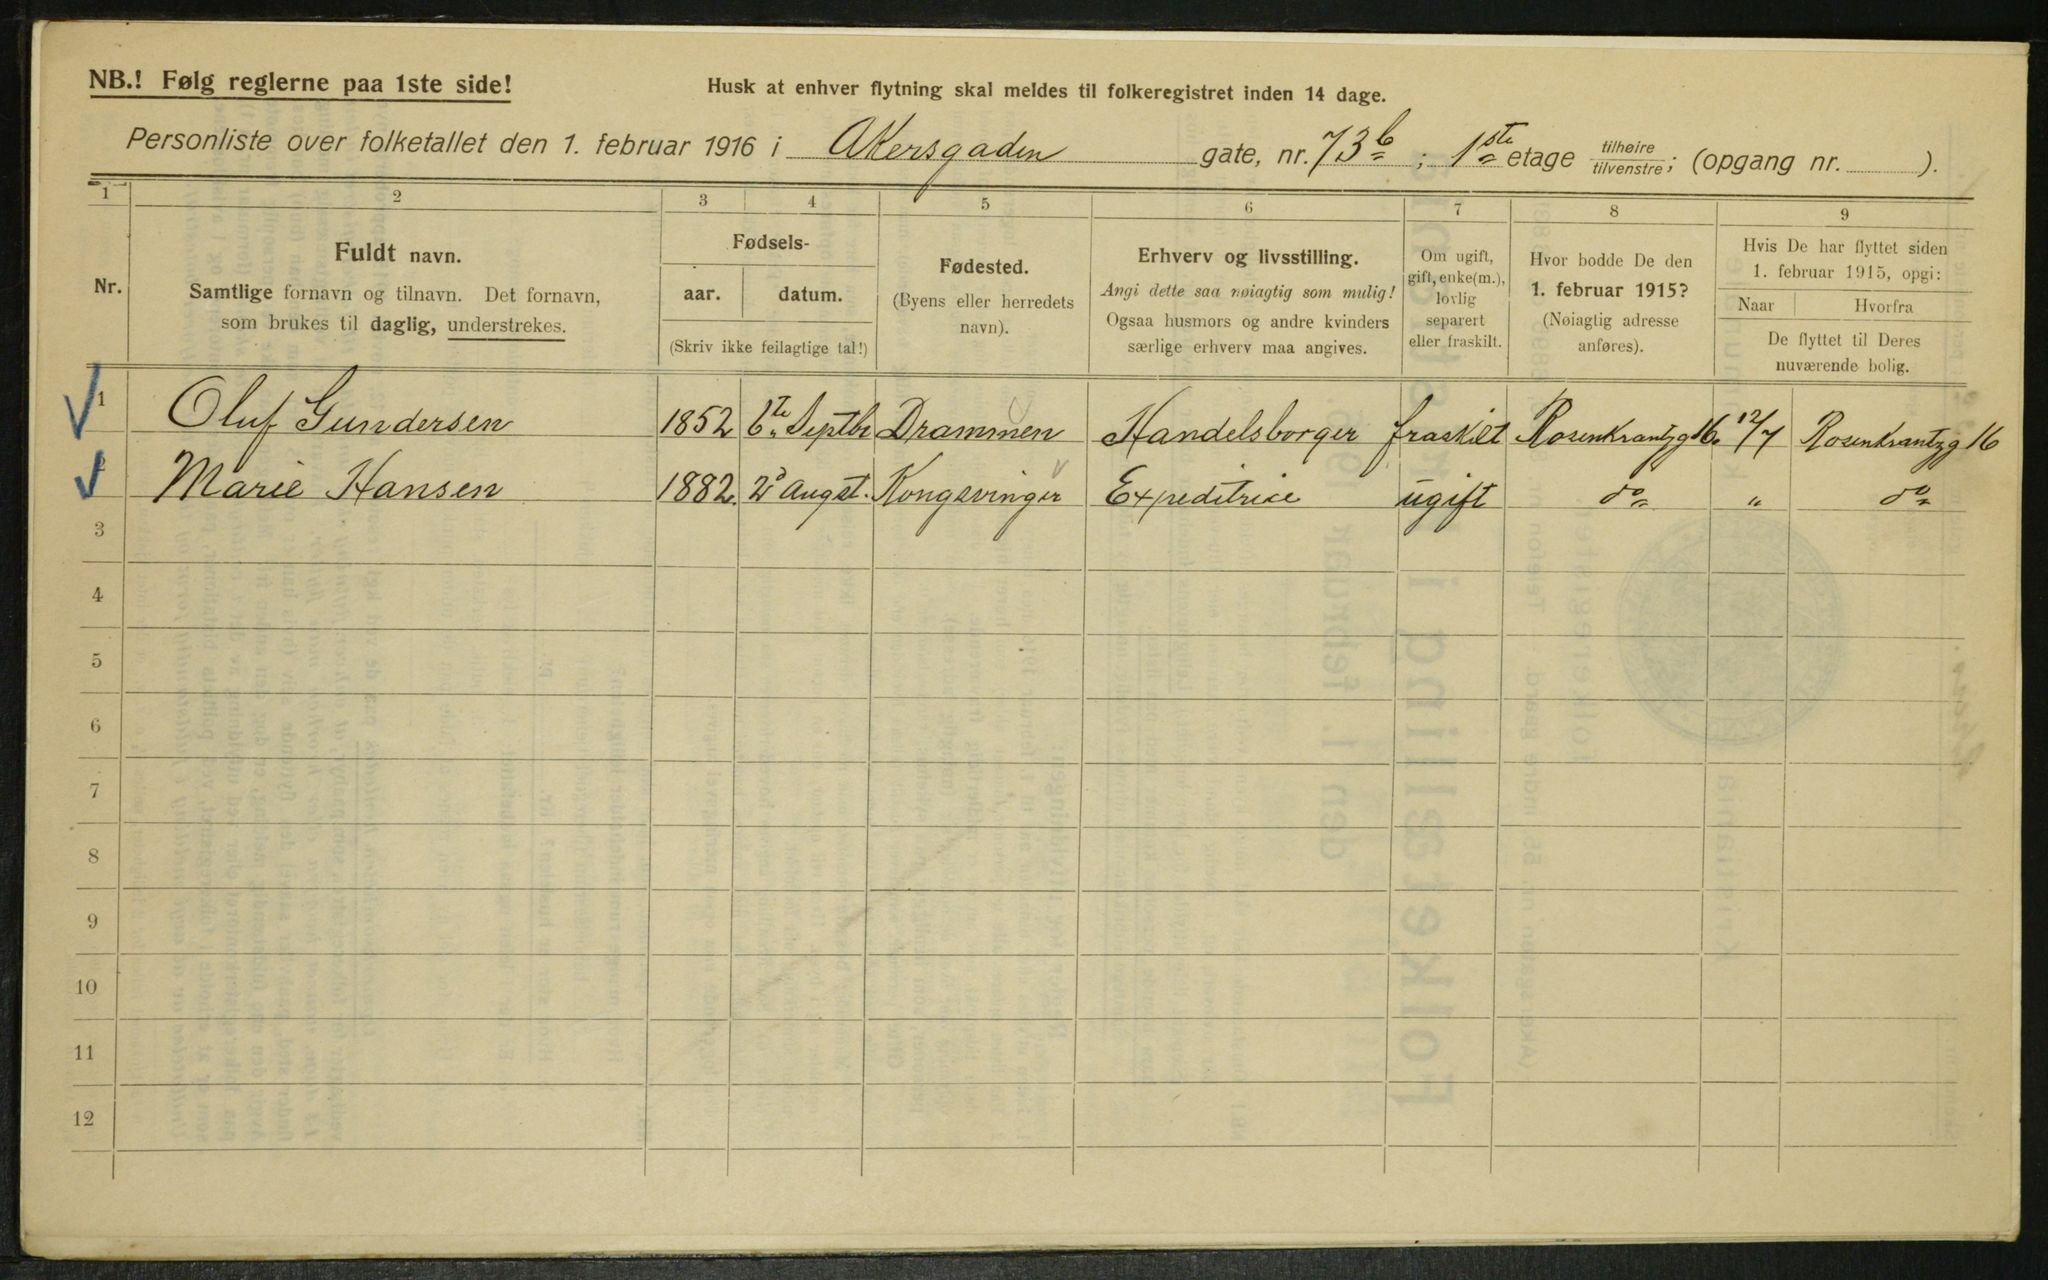 NB.! Følg reglerne paa 1ste side!
Husk at enhver flytning skal meldes til folkeregistret inden 14 dage.
Personliste over folketallet den 1. februar 1916 i Akersgaden gate, nr. 73b ; 1ste etage tilhøire/tilvenstre; (opgang nr. ).
1 2 3 4 5 6 7 8 9
Nr.
Fuldt navn.
Samtlige fornavn og tilnavn. Det fornavn,
som brukes til daglig, understrekes.
Fødsels-
aar. datum.
(Skriv ikke feilagtige tal!)
Fødested.
(Byens eller herredets
navn).
Erhverv og livsstilling.
Angi dette saa nøiagtig som mulig!
Ogsaa husmors og andre kvinders
særlige erhverv maa angives.
Om ugift,
gift, enke(m.),
lovlig
separert
eller fraskilt.
Hvor bodde De den
1. februar 1915?
(Nøiagtig adresse
anføres).
Hvis De har flyttet siden
1. februar 1915, opgi:
Naar Hvorfra
De flyttet til Deres
nuværende bolig.
1 Oluf Gundersen 1852 6te Septbr Drammen Handelsborger fraskilt Rosenkrantzg 16. 12/7 Rosenkrantzg 16
2 Marie Hansen 1882. 2d Augst. Kongsvinger Expeditrice ugift do " do
3
4
5
6
7
8
9
10
11
12